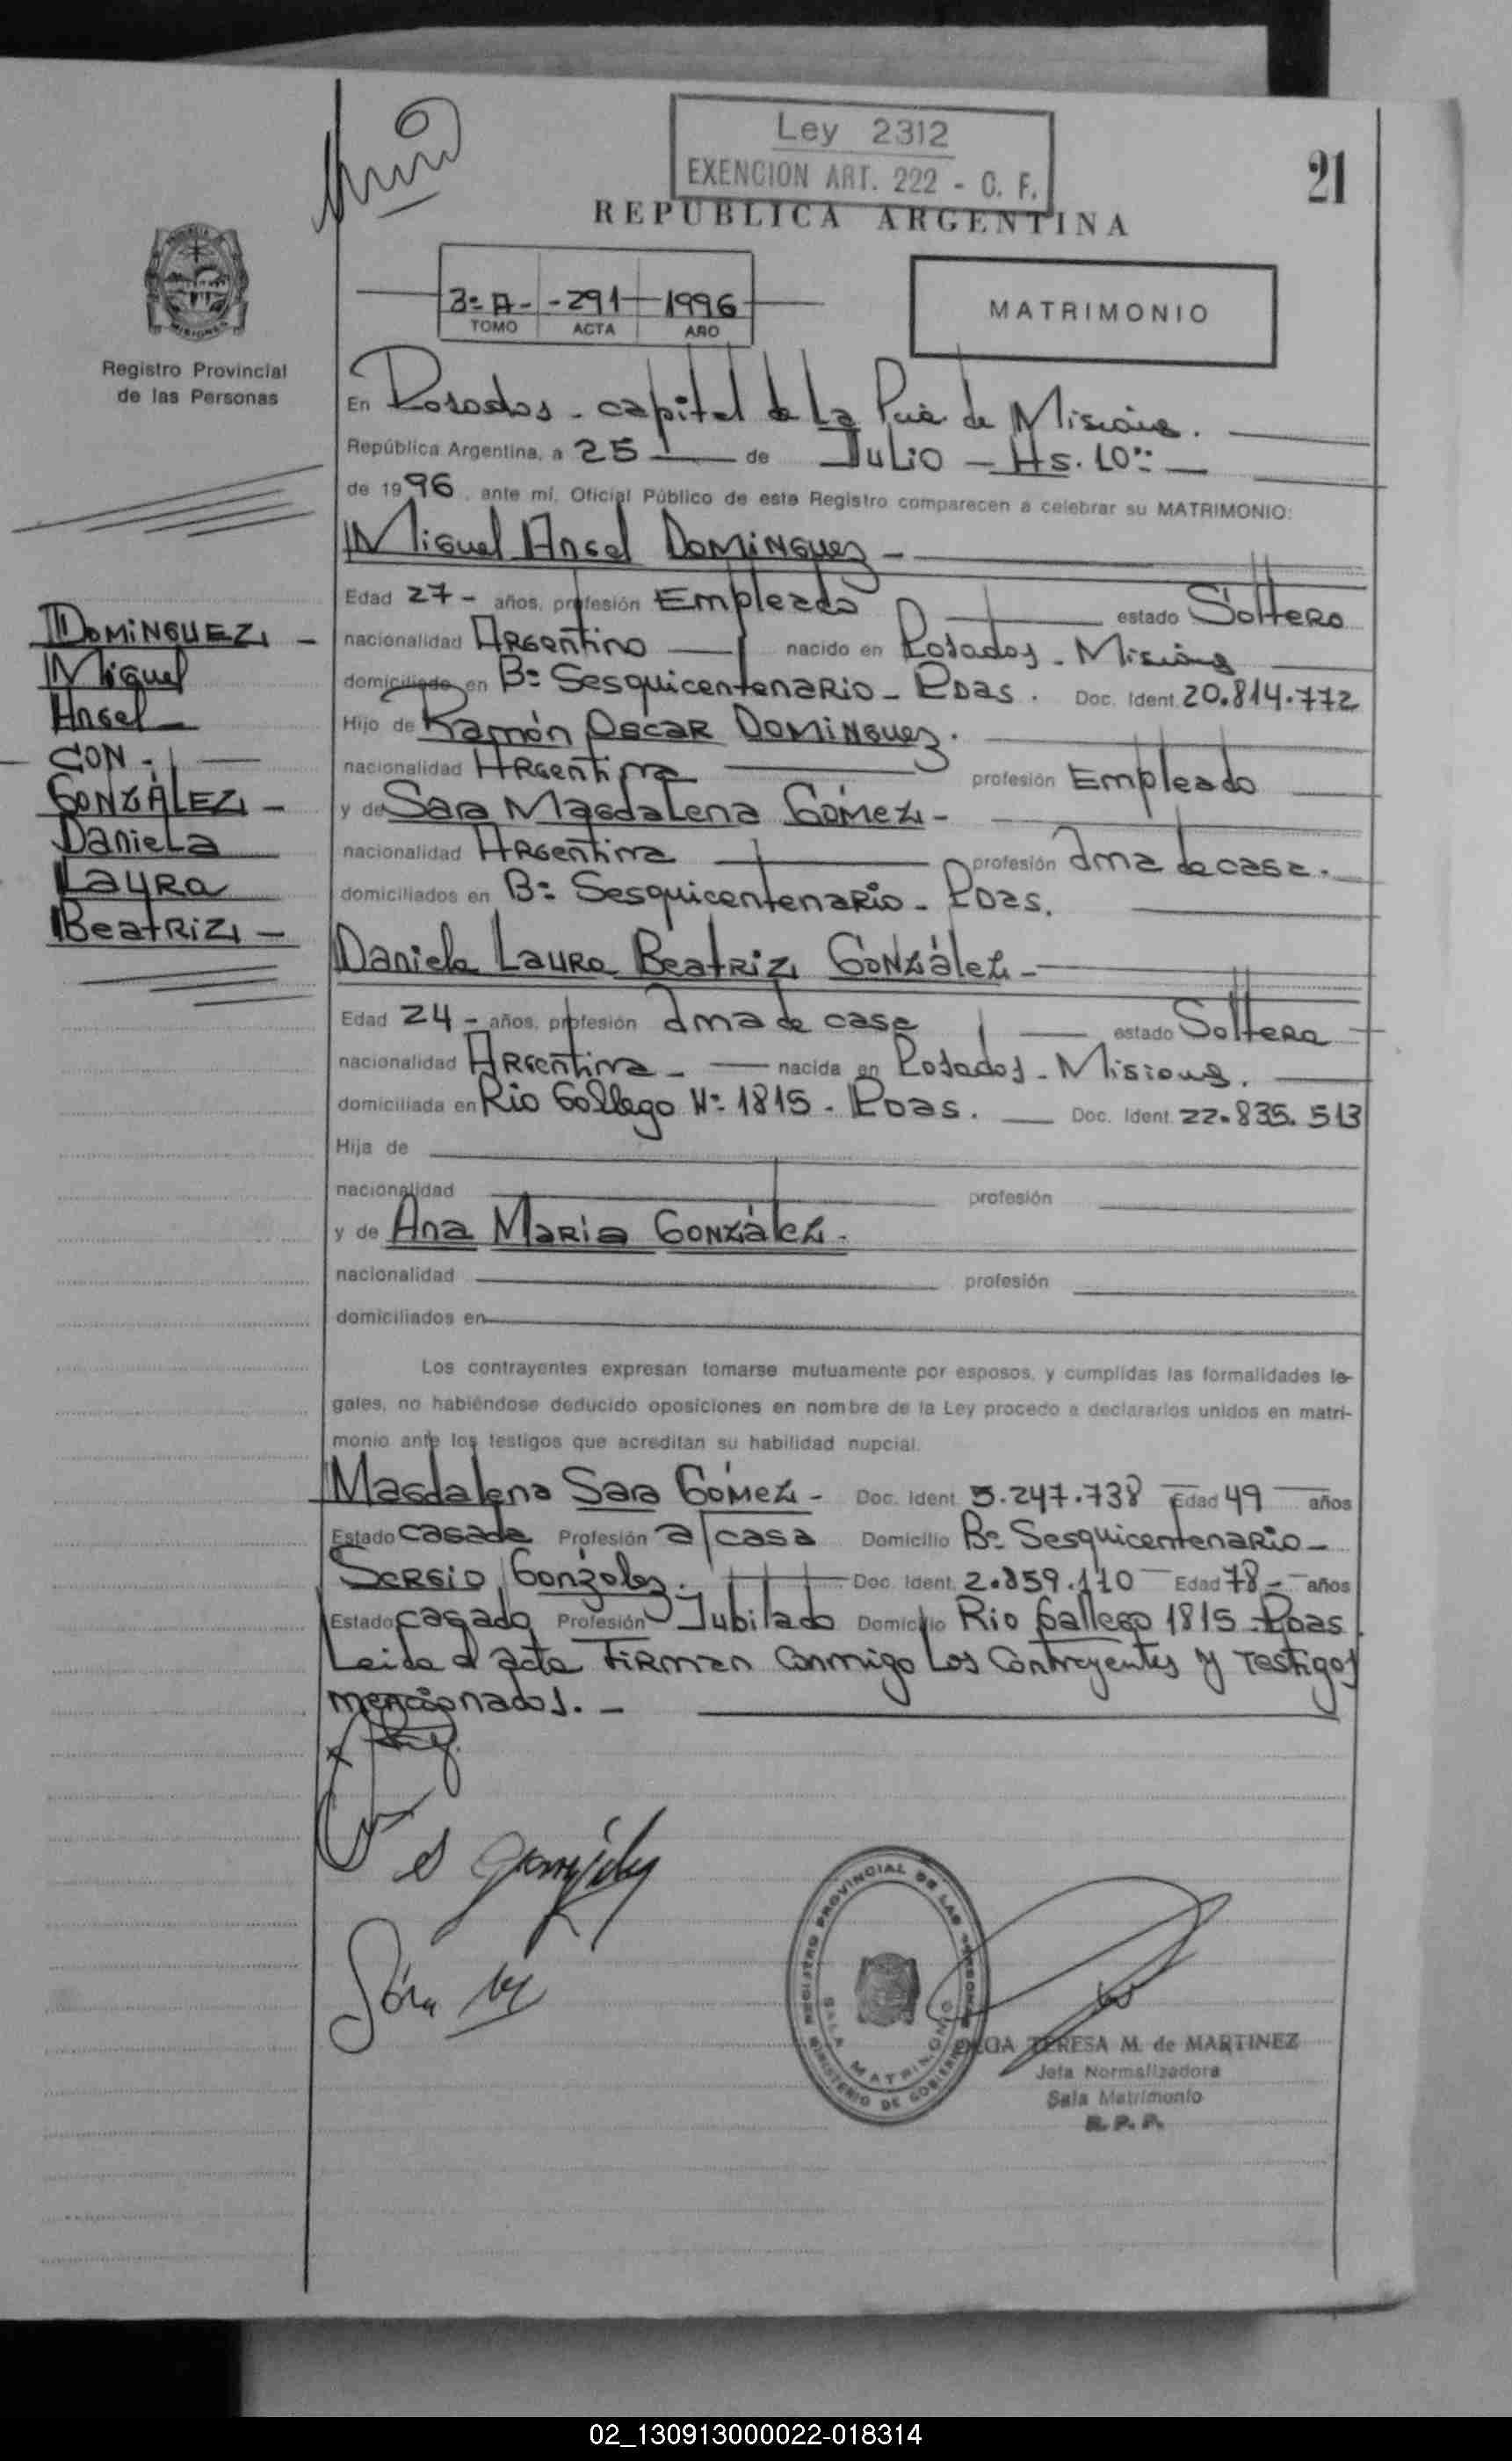 Ley 2312
EXENCION ART. 222 - C. F.
21
REPUBLICA ARGENTINA
3º A - - 291 - 1996
TOMO ACTA AÑO
MATRIMONIO
Registro Provincial
de las Personas
En Posadas - capital de la Pcia de Misiones.
República Argentina, a 25 de Julio - Hs. 10
de 1996, ante mí, Oficial Público de este Registro comparecen a celebrar su MATRIMONIO:
Miguel Angel Dominguez -
Edad 27 - años, profesión Empleado estado Soltero
nacionalidad Argentino nacido en Posadas - Misiones
domiciliado en Bº Sesquicentenario - Pdas. Doc. Ident. 20.814.772
Hijo de Ramón Oscar Dominguez.
nacionalidad Argentina profesión Empleado
y de Sara Magdalena Gómez -
nacionalidad Argentina profesión ama de casa.
domiciliados en Bº Sesquicentenario - Pdas.
Daniela Laura Beatriz González -
Edad 24 - años, profesión ama de casa estado Soltera
nacionalidad Argentina - nacida en Posadas - Misiones.
domiciliada en Rio Gallego Nº 1815 - Pdas. Doc. Ident. 22.835.513
Hija de
nacionalidad profesión
y de Ana Maria González -
nacionalidad profesión
domiciliados en
DOMINGUEZ -
Miguel
Angel
CON -
GONZÁLEZ -
Daniela
Laura
Beatriz -
Los contrayentes expresan tomarse mutuamente por esposos, y cumplidas las formalidades le-
gales, no habiéndose deducido oposiciones en nombre de la Ley procedo a declararlos unidos en matri-
monio ante los testigos que acreditan su habilidad nupcial.
Magdalena Sara Gómez - Doc. Ident. 5.247.738 Edad 49 años
Estado casada Profesión a/casa Domicilio Bº Sesquicentenario -
Sergio González. Doc. Ident. 2.859.110 Edad 78 - años
Estado casado Profesión Jubilado Domicilio Rio Gallego 1815 - Pdas.
Leida el acta firman conmigo los contrayentes y testigos
mencionados. -
S González
Sara M
REGISTRO PROVINCIAL DE LAS PERSONAS
SALA MATRIMONIO
MINISTERIO DE GOBIERNO
TERESA M. de MARTINEZ
Jefa Normalizadora
Sala Matrimonio
R. P. P.
02_130913000022-018314